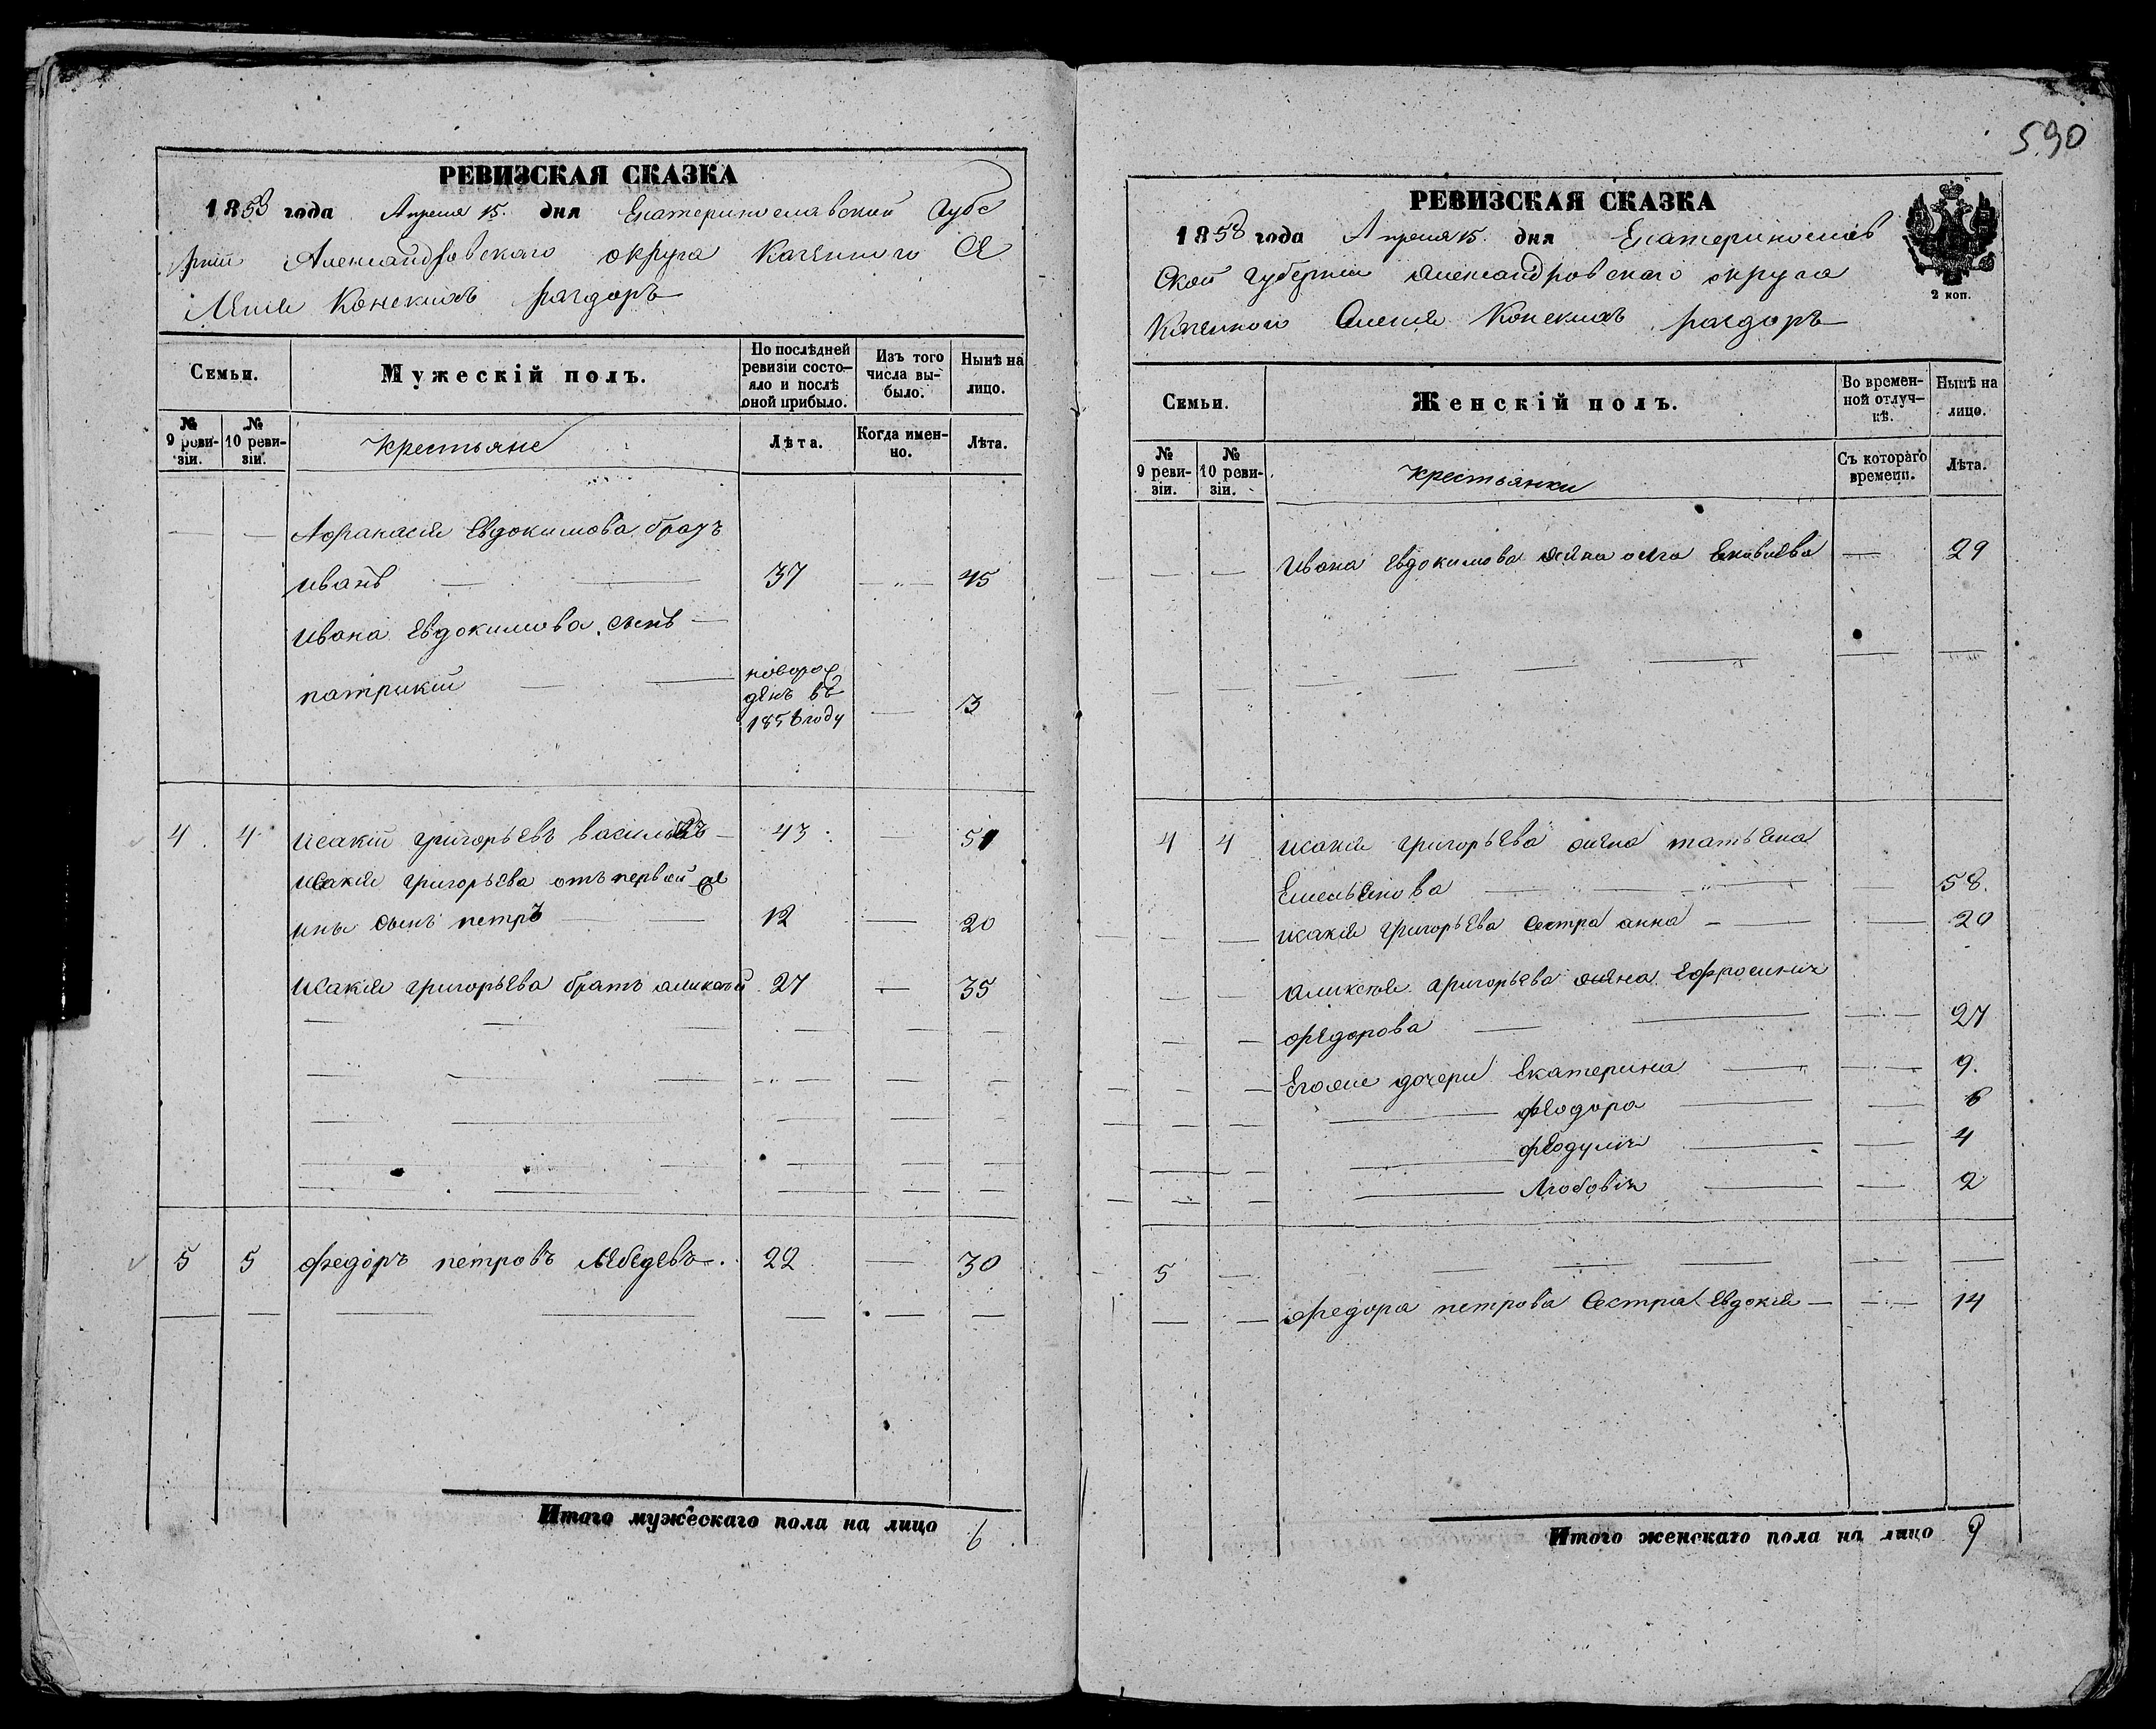 590
РЕВИЗСКАЯ СКАЗКА
1858 года Апреля 15. дня Екатеринославской Губе
рніи Александровскаго округа Казенного Се
Ленія Конскихъ раздоръ
Семьи.
Мужескій полъ.
По послѣдней ревизіи состо-
яло и послѣ
оной прибыло.
Изъ того
числа вы-
было.
Нынѣ на
лицо.
№
9 реви-
зіи.
№
10 реви-
зіи.
Крестьяне
Лѣта.
Когда имен-
но.
Лѣта.
Афанасія Евдокимова братъ
Иванъ 37 45
Ивана Евдокимова сынъ
патрикій
новорож
денъ въ
году 3
4. 4. Исакій григорьевъ васильевъ 43. 51
Исакія григорьева отъ первой же
ны сынъ петръ 12 20
Исакія григорьева братъ аликсѣй 27 35
5 5 федоръ петровъ лебедевъ. 22 30
Итого мужескаго пола на лицо 6
РЕВИЗСКАЯ СКАЗКА
1858 года Апреля 15. дня Екатеринослав
Ской губерніи александровскаго округа
Казенного Селенія Конскихъ раздоръ
2 коп.
Семьи.
Женскій полъ.
Во времен-
ной отлуч-
кѣ.
Нынѣ на
лицо.
№
9 реви-
зіи.
№
10 реви-
зіи.
Крестьянки
Съ котораго
времени.
Лѣта.
Ивана Евдокимова жена 29
4 4 Исакія григорьева жена татьяна
Емельянова 58.
Исакія григорьева Сестра анна 20
аликсѣя григорьева жена Ефросинія
федорова 27
Егоже дочери Екатерина 9.
феодора 6
феодулія 4
Любовія 2
5
федора петрова Сестра Евдокія 14
Итого женскаго пола на лицо 9